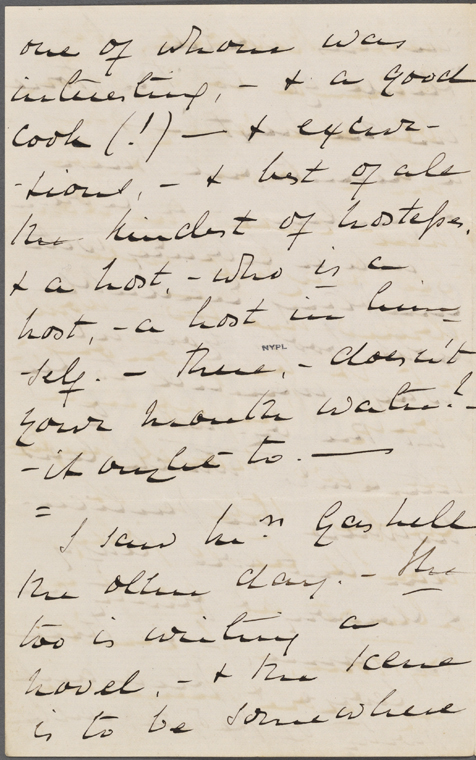 one of whom was
interesting, - & a good
cook (!) — & excur-
-sions, - & best of all
the kindest of hostess,
& a host, - who is a
host, - a host in him-
-self. - There, - doesn't
NYPL
your mouth water? -
- it ought to. —
= I saw Mrs Gaskell
the other day. - She
too is writing a
novel, - & the scene
is to be somewhere